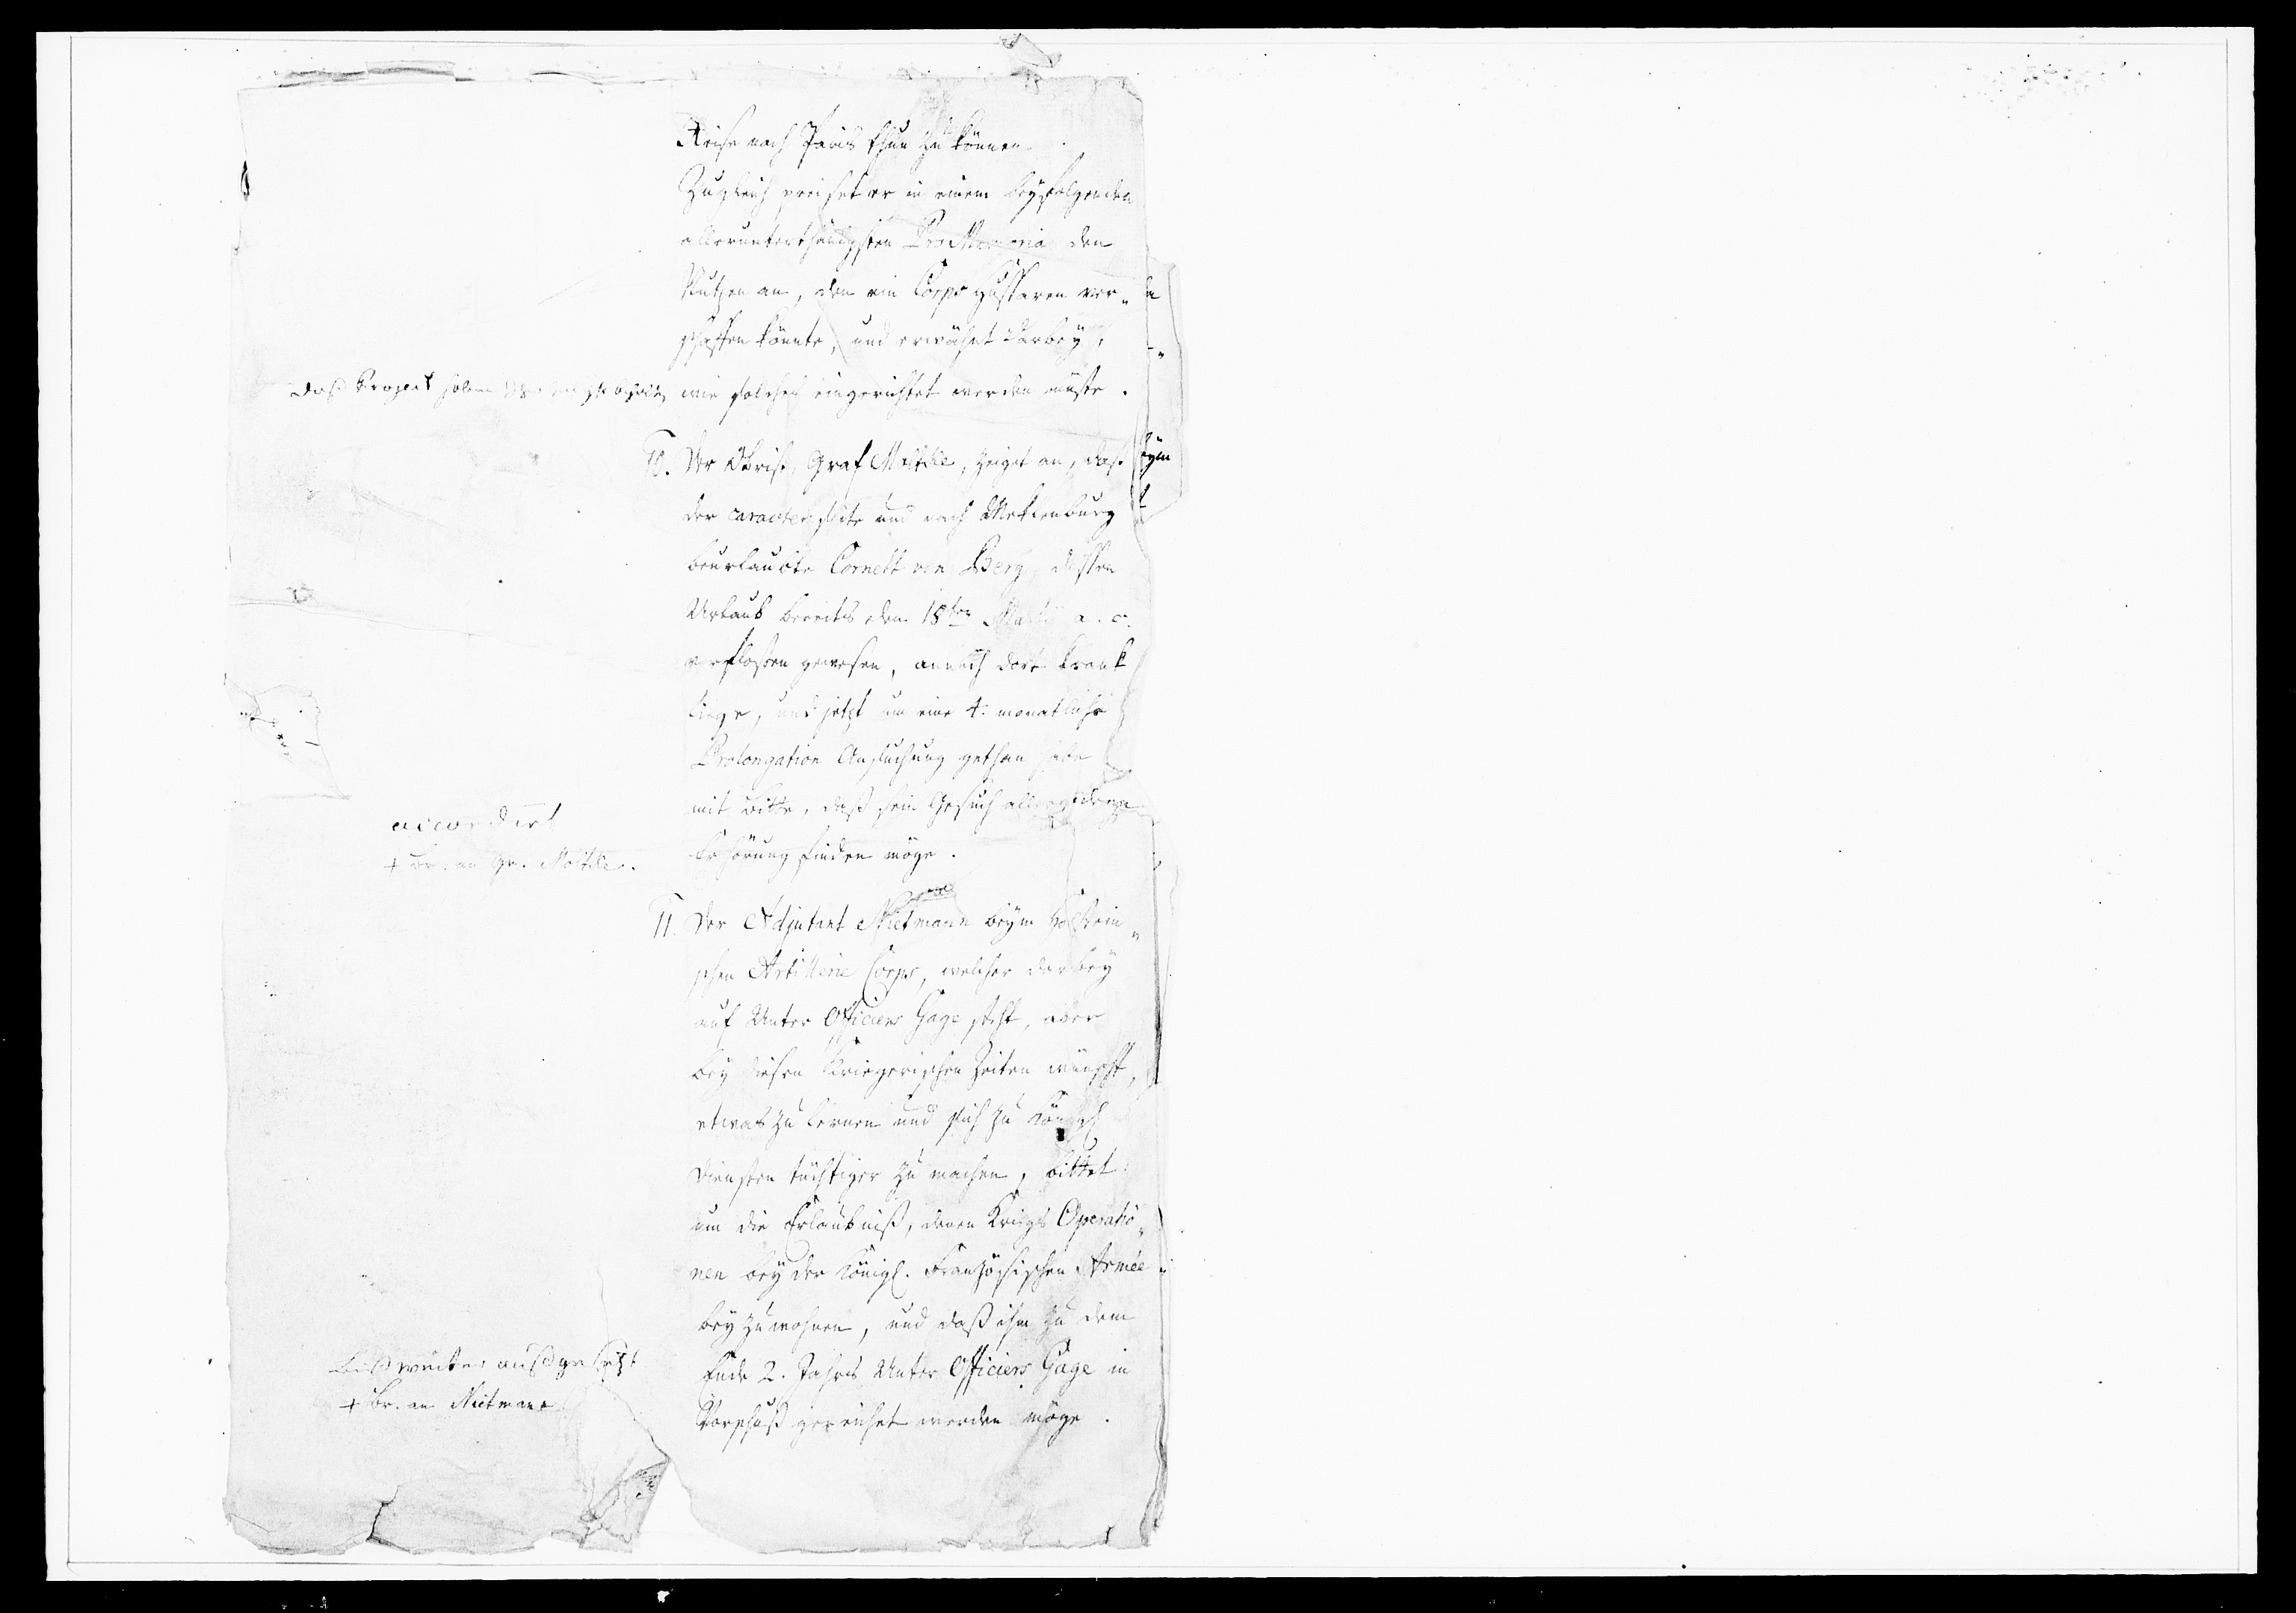 Reise nach Paris thun zu können.
Zugleich preiset er in einem beyfolgenden
allerunterthänigsten Pro Memoria den
Nutzen an, den ein Corps Hussaren ver„
schaffen könnte, und erwähnt darbey,
wie solches eingerichtet werden müste.
Das Project haben
10. Der Obrist, Graf Moltke, zeiget an, daß
der caracterisirte und nach Meklenburg
beurlaubte Cornett von Berg, dessen
Urlaub bereits den 18ten Martij a. c.
verflossen gewesen, annoch dort krank
liege, und jetzt um eine 4. monatliche
Prolongation Ansuchung gethan habe
mit Bitte, daß sein Gesuch allergdste
Erhörung finden möge.
accordirt
+ br. an Gr. Moltke.
11. Der Adjutant Nietmann beym Holstein„
schen Artillerie Corps, welcher darbey
auf Unter Officiers Gage steht, aber
bey diesen Kriegerischen Zeiten wünscht,
etwas zu lernen und sich zu Königl.
Diensten tüchtiger zu machen, bittet
um die Erlaubniß, denen Kriegs Operatio„
nen bey der Königl. Französischen Armée
beyzuwohnen, und daß ihm zu dem
Ende 2. Jahres Unter Officiers Gage in
Vorschuß gereichet werden möge.
biß weiter außgesetzt
+ br. an Nietmann